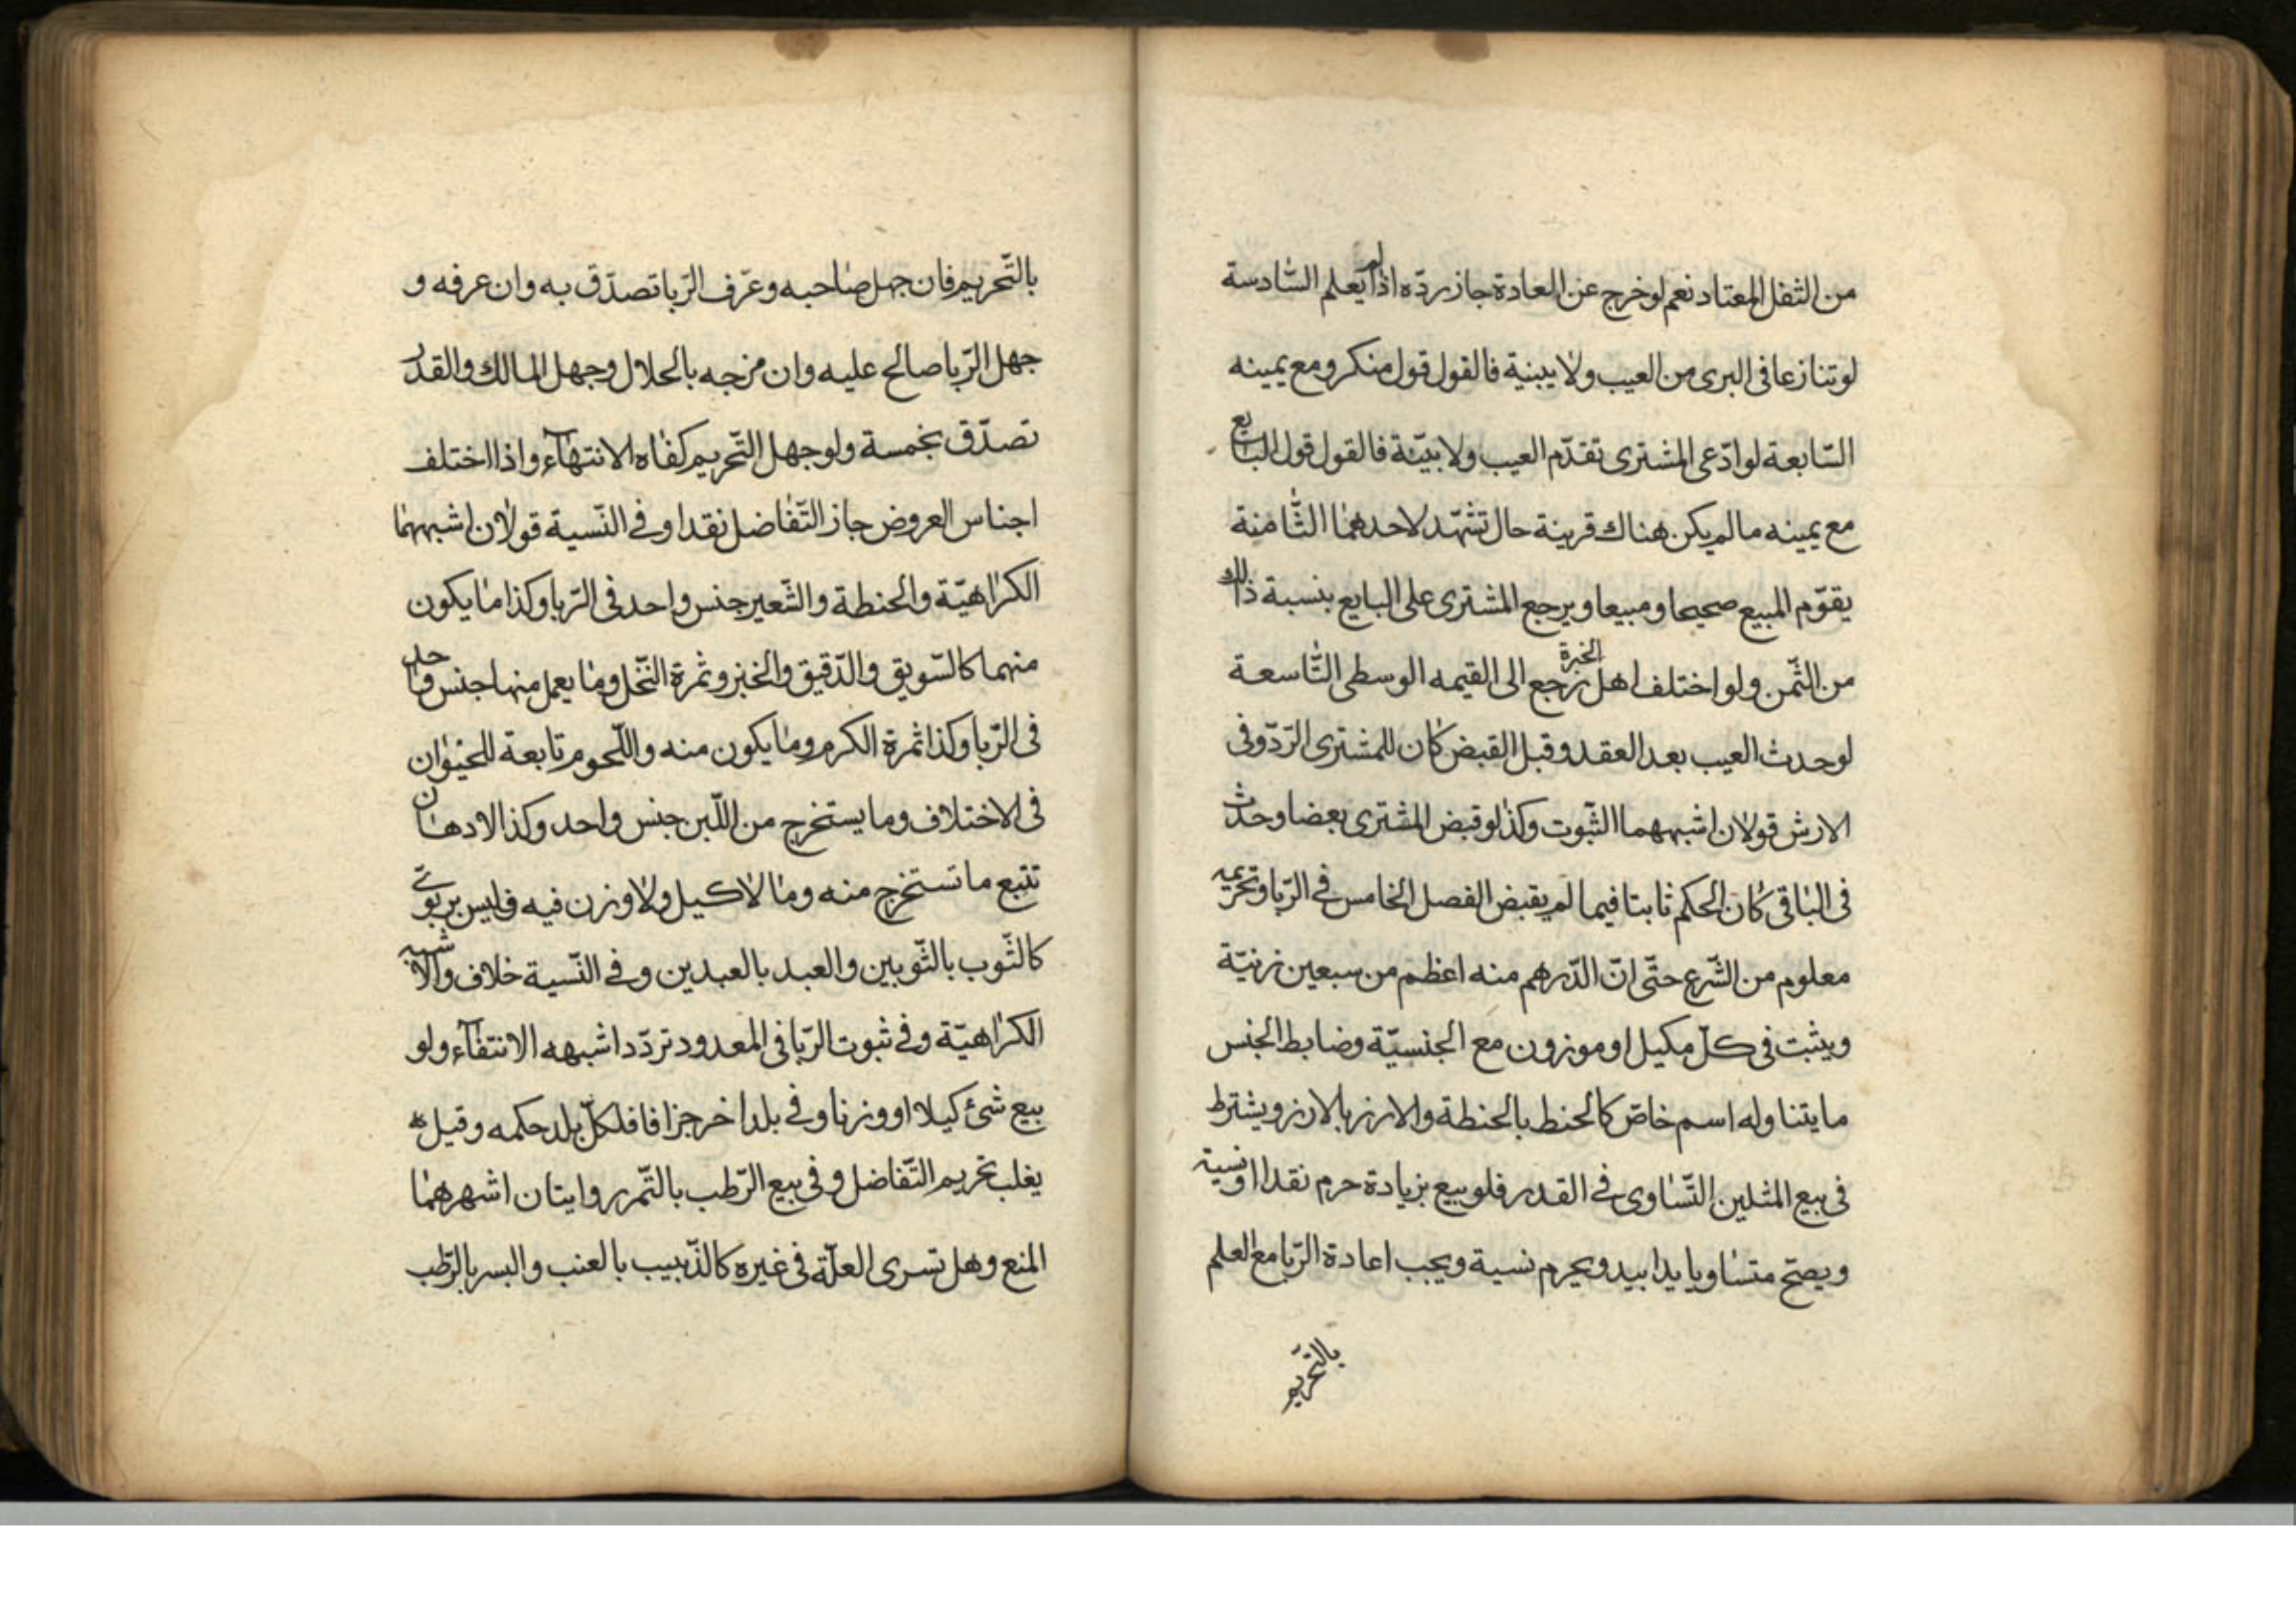 من الثفل المعتاد نعم لو خرج عن العادة جاز ردّه اذا لم يعلم السّادسة
لو تنازعا فى البرى من العيب ولا بينية فالقول قول منكرو مع يمينه
السّابعة لو ادّعى المشترى تقدّم العيب ولا بيّنة فالقول قول البايع
مع يمينه ما لم يكن هناك قرينة حال تشهّد لاحدهما الثّامنة
يقوّم المبيع صحيحا ومبيعا ويرجع المشترى على البايع بنسبة ذلك
من الثّمن ولو اختلف اهل الخبرة نرجع الى القيمه الوسطى التّاسعة
لو حدث العيب بعد العقد وقبل القبض كان للمشترى الرّدّ وفى
الارش قولان اشبههما الثّبوت وكذا لو قبض المشترى بعضا وحدث
فى الباقى كان الحكم ثابتا فيما لم يقبض الفصل الخامس فى الرّبا وتحريمه
معلوم من الشّرع حتّى انّ الدّرهم منه اعظم من سبعين زنيّة
ويثبت فى كلّ مكيل او موزون مع الجنسيّة وضابط الجنس
ما يتناوله اسم خاصّ كالحنط بالحنطة والارز بالارز ويشترط
فى بيع المثلين التّساوى فى القدر فلو بيع بزيادة حرم نقدا او نسية
ويصحّ متساويا يدا بيد ويحرم نسية ويجب اعادة الرّبا مع العلم
بالتّحريم
بالتّحريم فان جهل صاحبه وعرّف الرّبا تصدّق به وان عرفه و
جهل الرّبا صالح عليه وان مزجه بالحلال وجهل المالك والقدر
تصدّق بخمسة ولو جهل التّحريم كفاه الانتهآء واذا اختلف
اجناس العروض جاز التّفاضل نقدا وفى النّسية قولان اشبههما
الكراهيّة والحنطة والشّعير جنس واحد فى الرّبا وكذا ما يكون
منهما كالسّويق والدّقيق والخبز وثمرة النّخل وما يعمل منها جنس واحد
فى الرّبا وكذا ثمرة الكرم وما يكون منه واللّحوم تابعة للحيوان
فى الاختلاف وما يستخرج من اللّبن جنس واحد وكذا الادهان
تتبع ما تستخرج منه وما لا كيل ولا وزن فيه فليس بربوىّ
كالثّوب بالثّوبين والعبد بالعبدين وفى النّسية خلاف والاشبه
الكراهيّة وفى ثبوت الرّبا فى المعدود تردّد اشبهه الانتفآء ولو
بيع شئ كيلا او وزنا وفى بلد اخر جزافا فلكلّ بلد حكمه وقيل
يغلب تحريم التّفاضل وفى بيع الرّطب بالتّمر روايتان اشهرهما
المنع وهل تسرى العلّة فى غيره كالذّبيب بالعنب والبسر بالرّطب